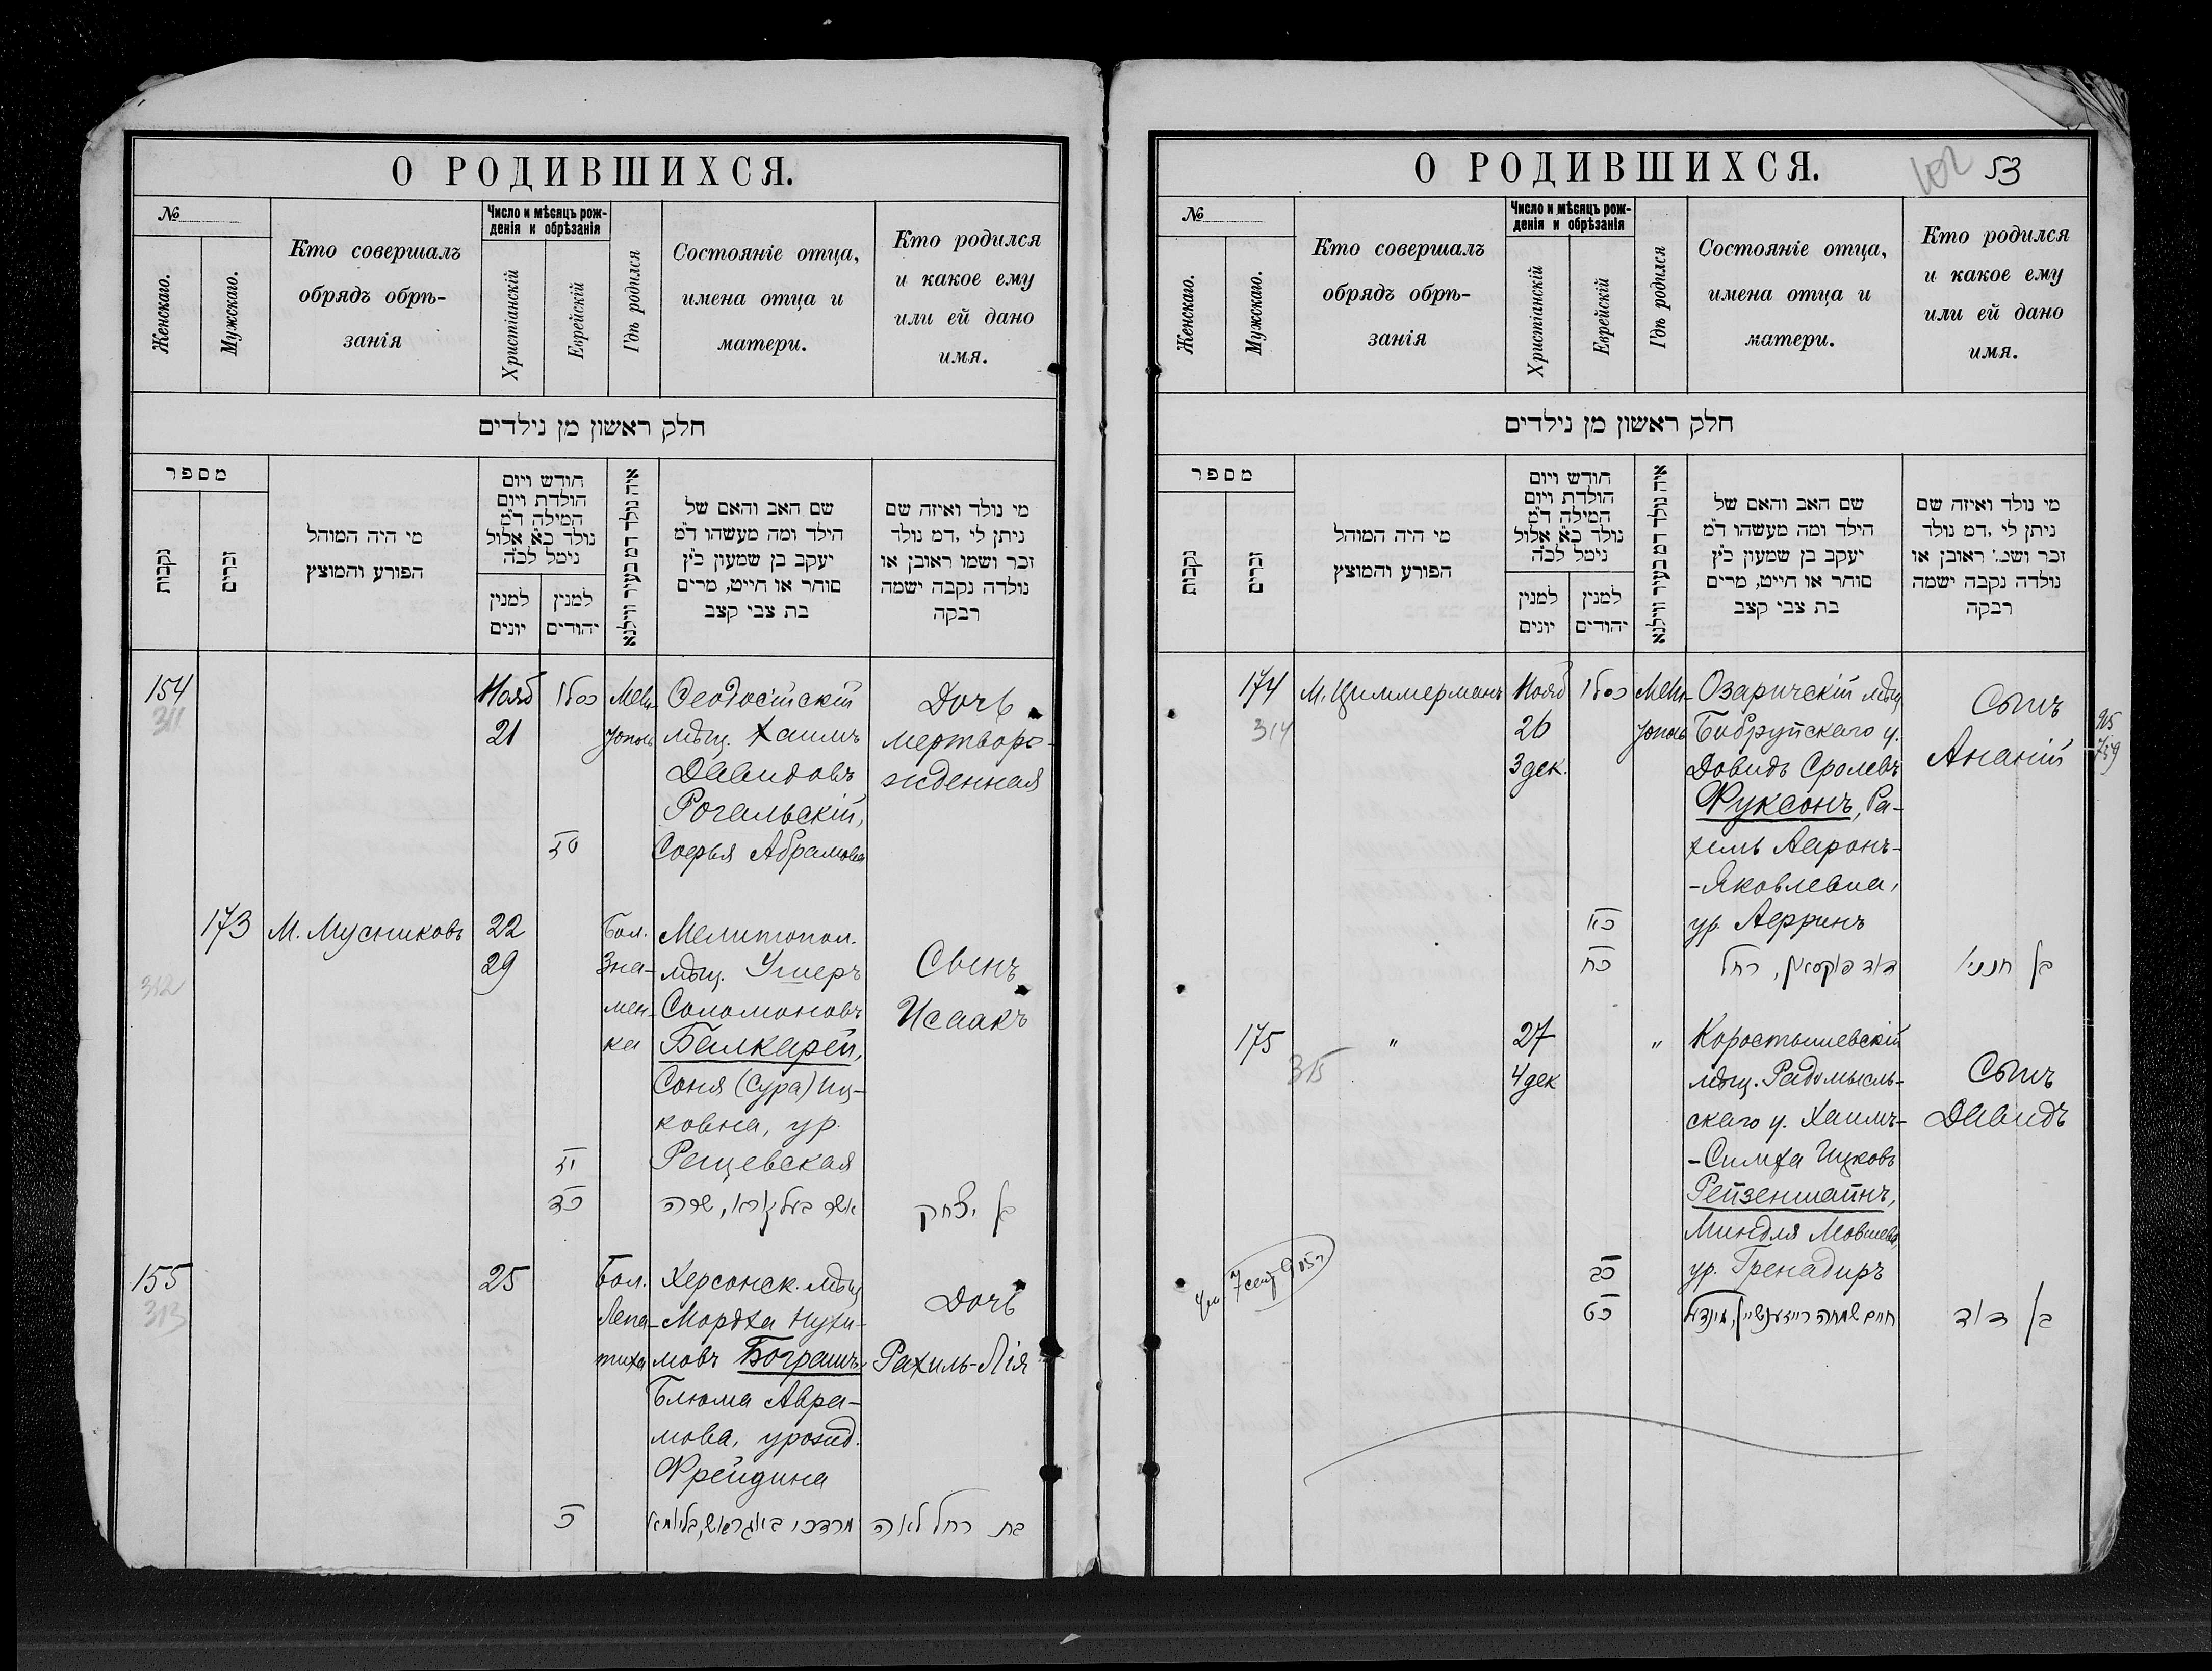 О РОДИВШИХСЯ.
№
Женскаго.
Мужскаго.
Кто совершалъ
обрядъ обрѣ-
занія
Число и мѣсяцъ рож-
денія и обрѣзанія
Христіанскій
Еврейскій
Гдѣ родился
Состояніе отца,
имена отца и
матери.
Кто родился
и какое ему
или ей дано
имя.
חלק ראשון מן נילדים
מספר
נקבות
זכרים
מי היה המוהל
הפורע והמוצץ
חודש ויום
הולדת ויום
המילה ד״מ
נולד כ״א אלול
נימל לכ״ה
למנין
יונים
למנין
יהודים
איה נולד דמ בעיר ווילנא
שם האב והאם של
הילד ומה מעשהו ד״מ
יעקב בן שמעון כ״ץ
סוחר או חייט, מרים
בת צבי קצב
מי נולד ואיזה שם
ניתן לי ,דמ נולד
זכר ושמו ראובן או
נולדה נקבה ישמה
רבקה
154
311
Нояб
21
כסלו
Мели-
тополь
Ѳеодосійскій
мѣщ. Хаимъ
Давидовъ
Рогальскій,
Софья Абрамова
Дочь
мертворо-
жденная
173
312
М. Мусниковъ
22
29
יז
כד
Бол.
Зна-
мен-
ка
Мелитопол.
мѣщ. Ушеръ
Соломоновъ
Балкарей,
Соня (Сура) Иц-
ковна, ур.
Рещевская
Сынъ
Исаакъ
בן יצחק
155
313
25
כ
Бол.
Лепа-
тиха
Херсонск. мѣщ
Мордха Нухи-
мовъ Бограшъ,
Блюма Авра-
мова, урожд.
Фрейдина
מרדכי באגראש, בליומא
Дочь
Рахиль-Лія
בת רחל לאה
О РОДИВШИХСЯ.
102 53
№
Женскаго.
Мужскаго.
Кто совершалъ
обрядъ обрѣ-
занія
Число и мѣсяцъ рож-
денія и обрѣзанія
Христіанскій
Еврейскій
Гдѣ родился
Состояніе отца,
имена отца и
матери.
Кто родился
и какое ему
или ей дано
имя.
חלק ראשון מן נילדים
מספר
נקבות
זכרים
מי היה המוהל
הפורע והמוצץ
חודש ויום
הולדת ויום
המילה ד״מ
נולד כ״א אלול
נימל לכ״ה
למנין
יונים
למנין
יהודים
איה נולד דמ בעיר ווילנא
שם האב והאם של
הילד ומה מעשהו ד״מ
יעקב בן שמעון כ״ץ
סוחר או חייט, מרים
בת צבי קצב
מי נולד ואיזה שם
ניתן לי ,דמ נולד
זכר ושמו ראובן או
נולדה נקבה ישמה
רבקה
174
314
М. Циммерманъ
Нояб
26
3 дек.
כסלו
כא
כח
Мели-
тополь
Озаричскій мѣщ
Бобруйскаго у.
Довидъ Сролевъ
Фуксонъ, Ра-
хиль Ааронъ-
-Яковлевна,
ур. Аерринъ
דוד פוקסאן, רחל
Сынъ
Ананій
בן חנני׳
175
315
"
27
4 дек
כב
כט
"
Коростышевскій
мѣщ. Радомысль-
скаго у. Хаимъ-
-Симха Ицковъ
Рейзенштайнъ,
Миндля Мовшева,
ур. Гренадиръ
חיים שמחה רייזענשטיין, מינדעל
Сынъ
Давидъ
בן דוד